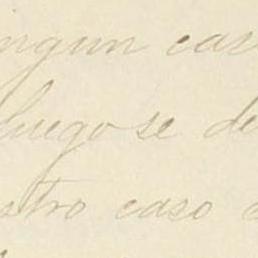 ingun cas
luego se de
stro caso